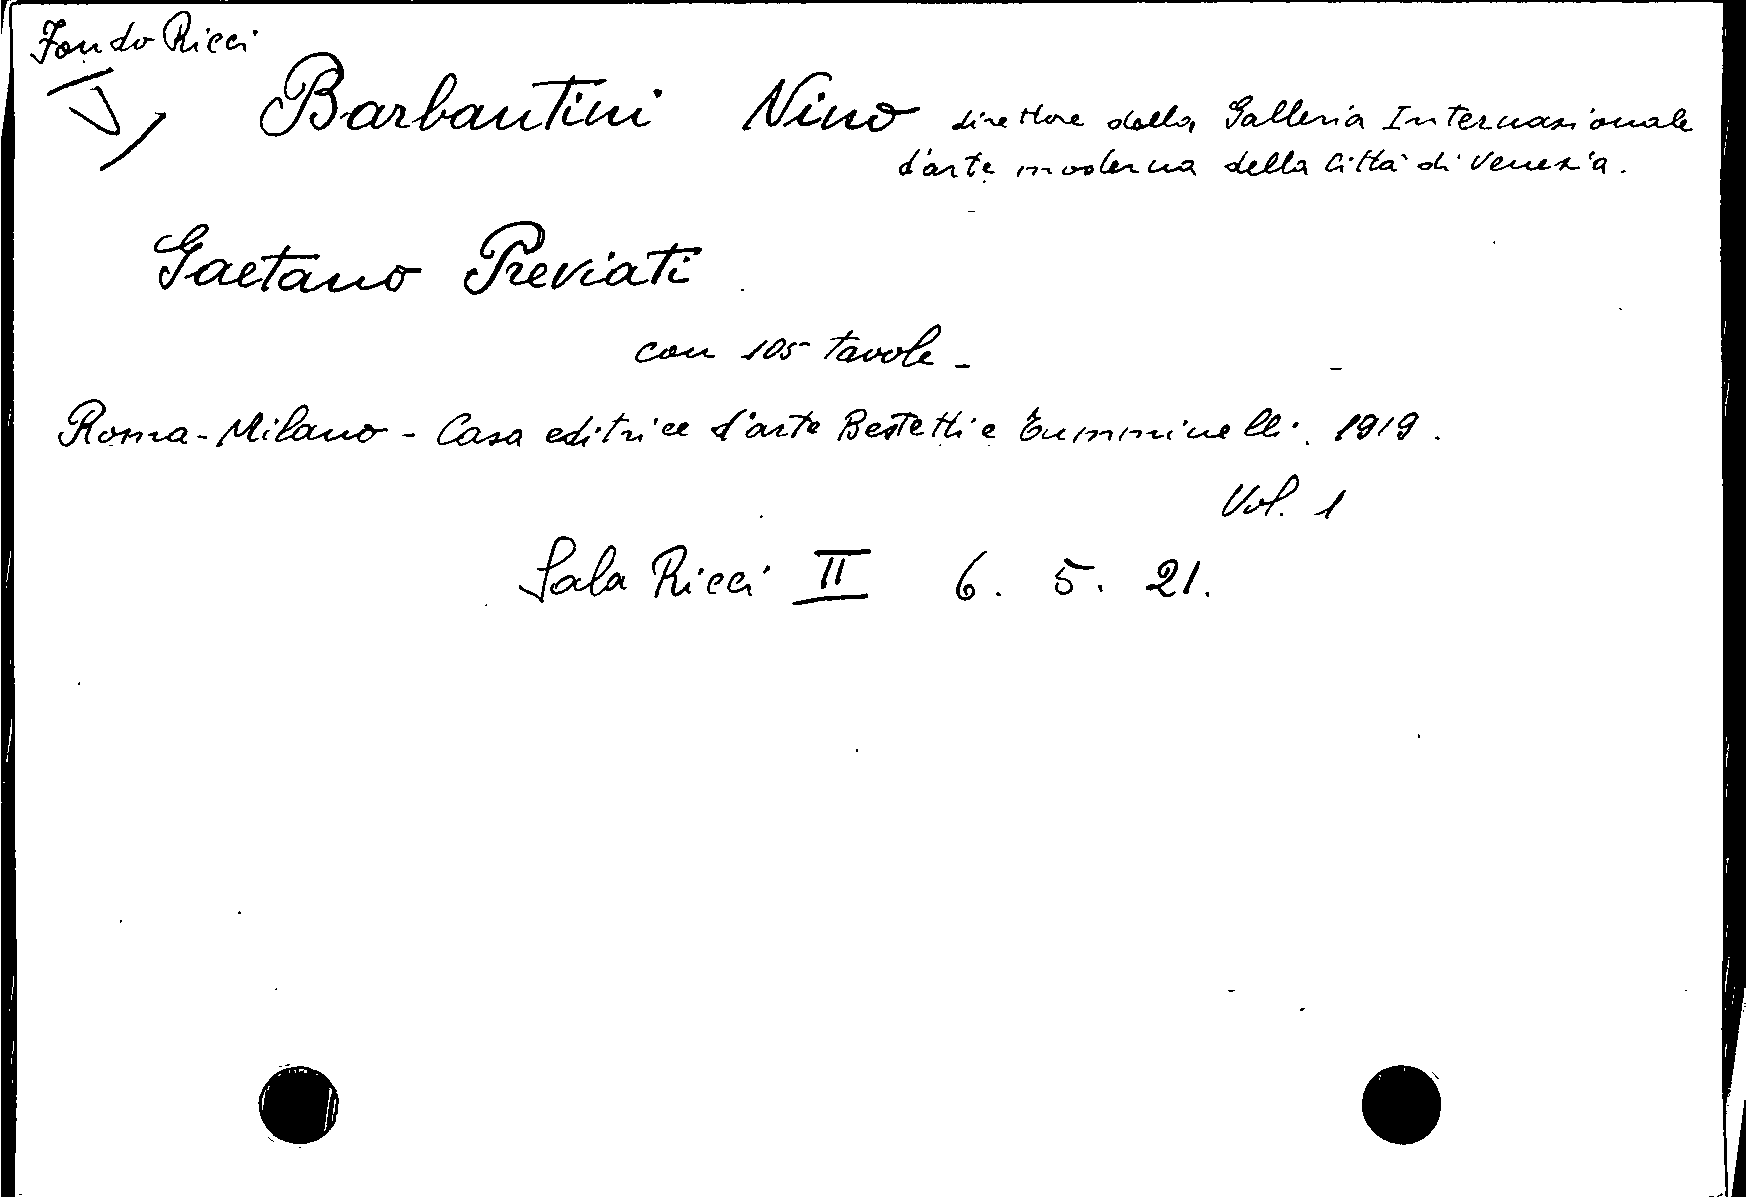 Fondo Ricci
Barbantini Nino direttore della Galleria Internazionale
d'arte moderna della Città di Venezia.
Gaetano Previati
con 105 tavole -
Roma - Milano - Casa editrice d'arte Bestetti e Tumminelli. 1919.
Vol. 1
Sala Ricci II 6. 5. 21.